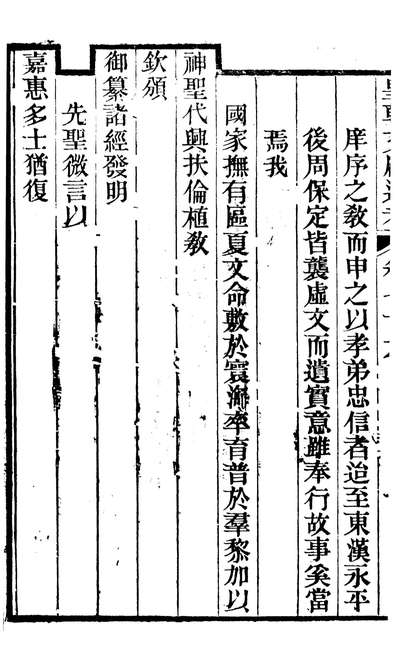 庠序之教而申之以孝弟忠信者迨至東漢永平
後周保定皆襲虛文而遺實意雖奉行故事奚當
焉我
國家撫有區夏文命敷於寰海率育普於羣黎加以
神聖代興扶倫植敎
欽頒
御纂諸經發明
先聖微言以
嘉惠多士猶復